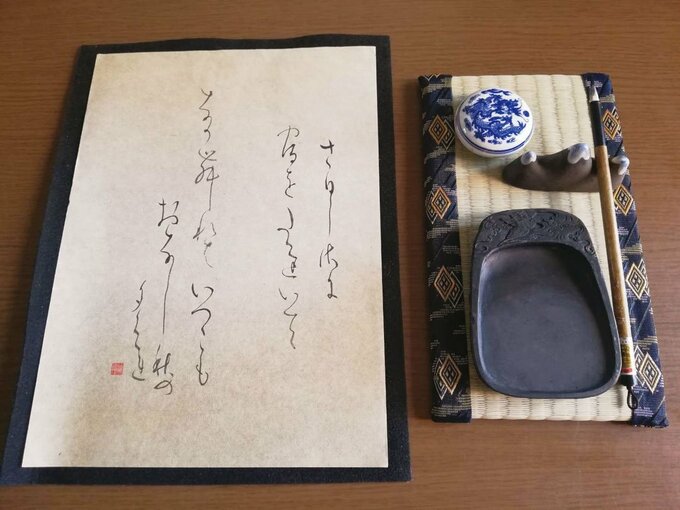 さひしさに
宿をたちいてて
なかむれはいつこも
おなし秋の
夕くれ